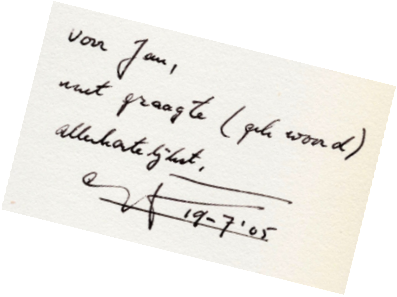 voor Jan,
met graagte (gek woord)
allerhartelijkst,
19-7-'05